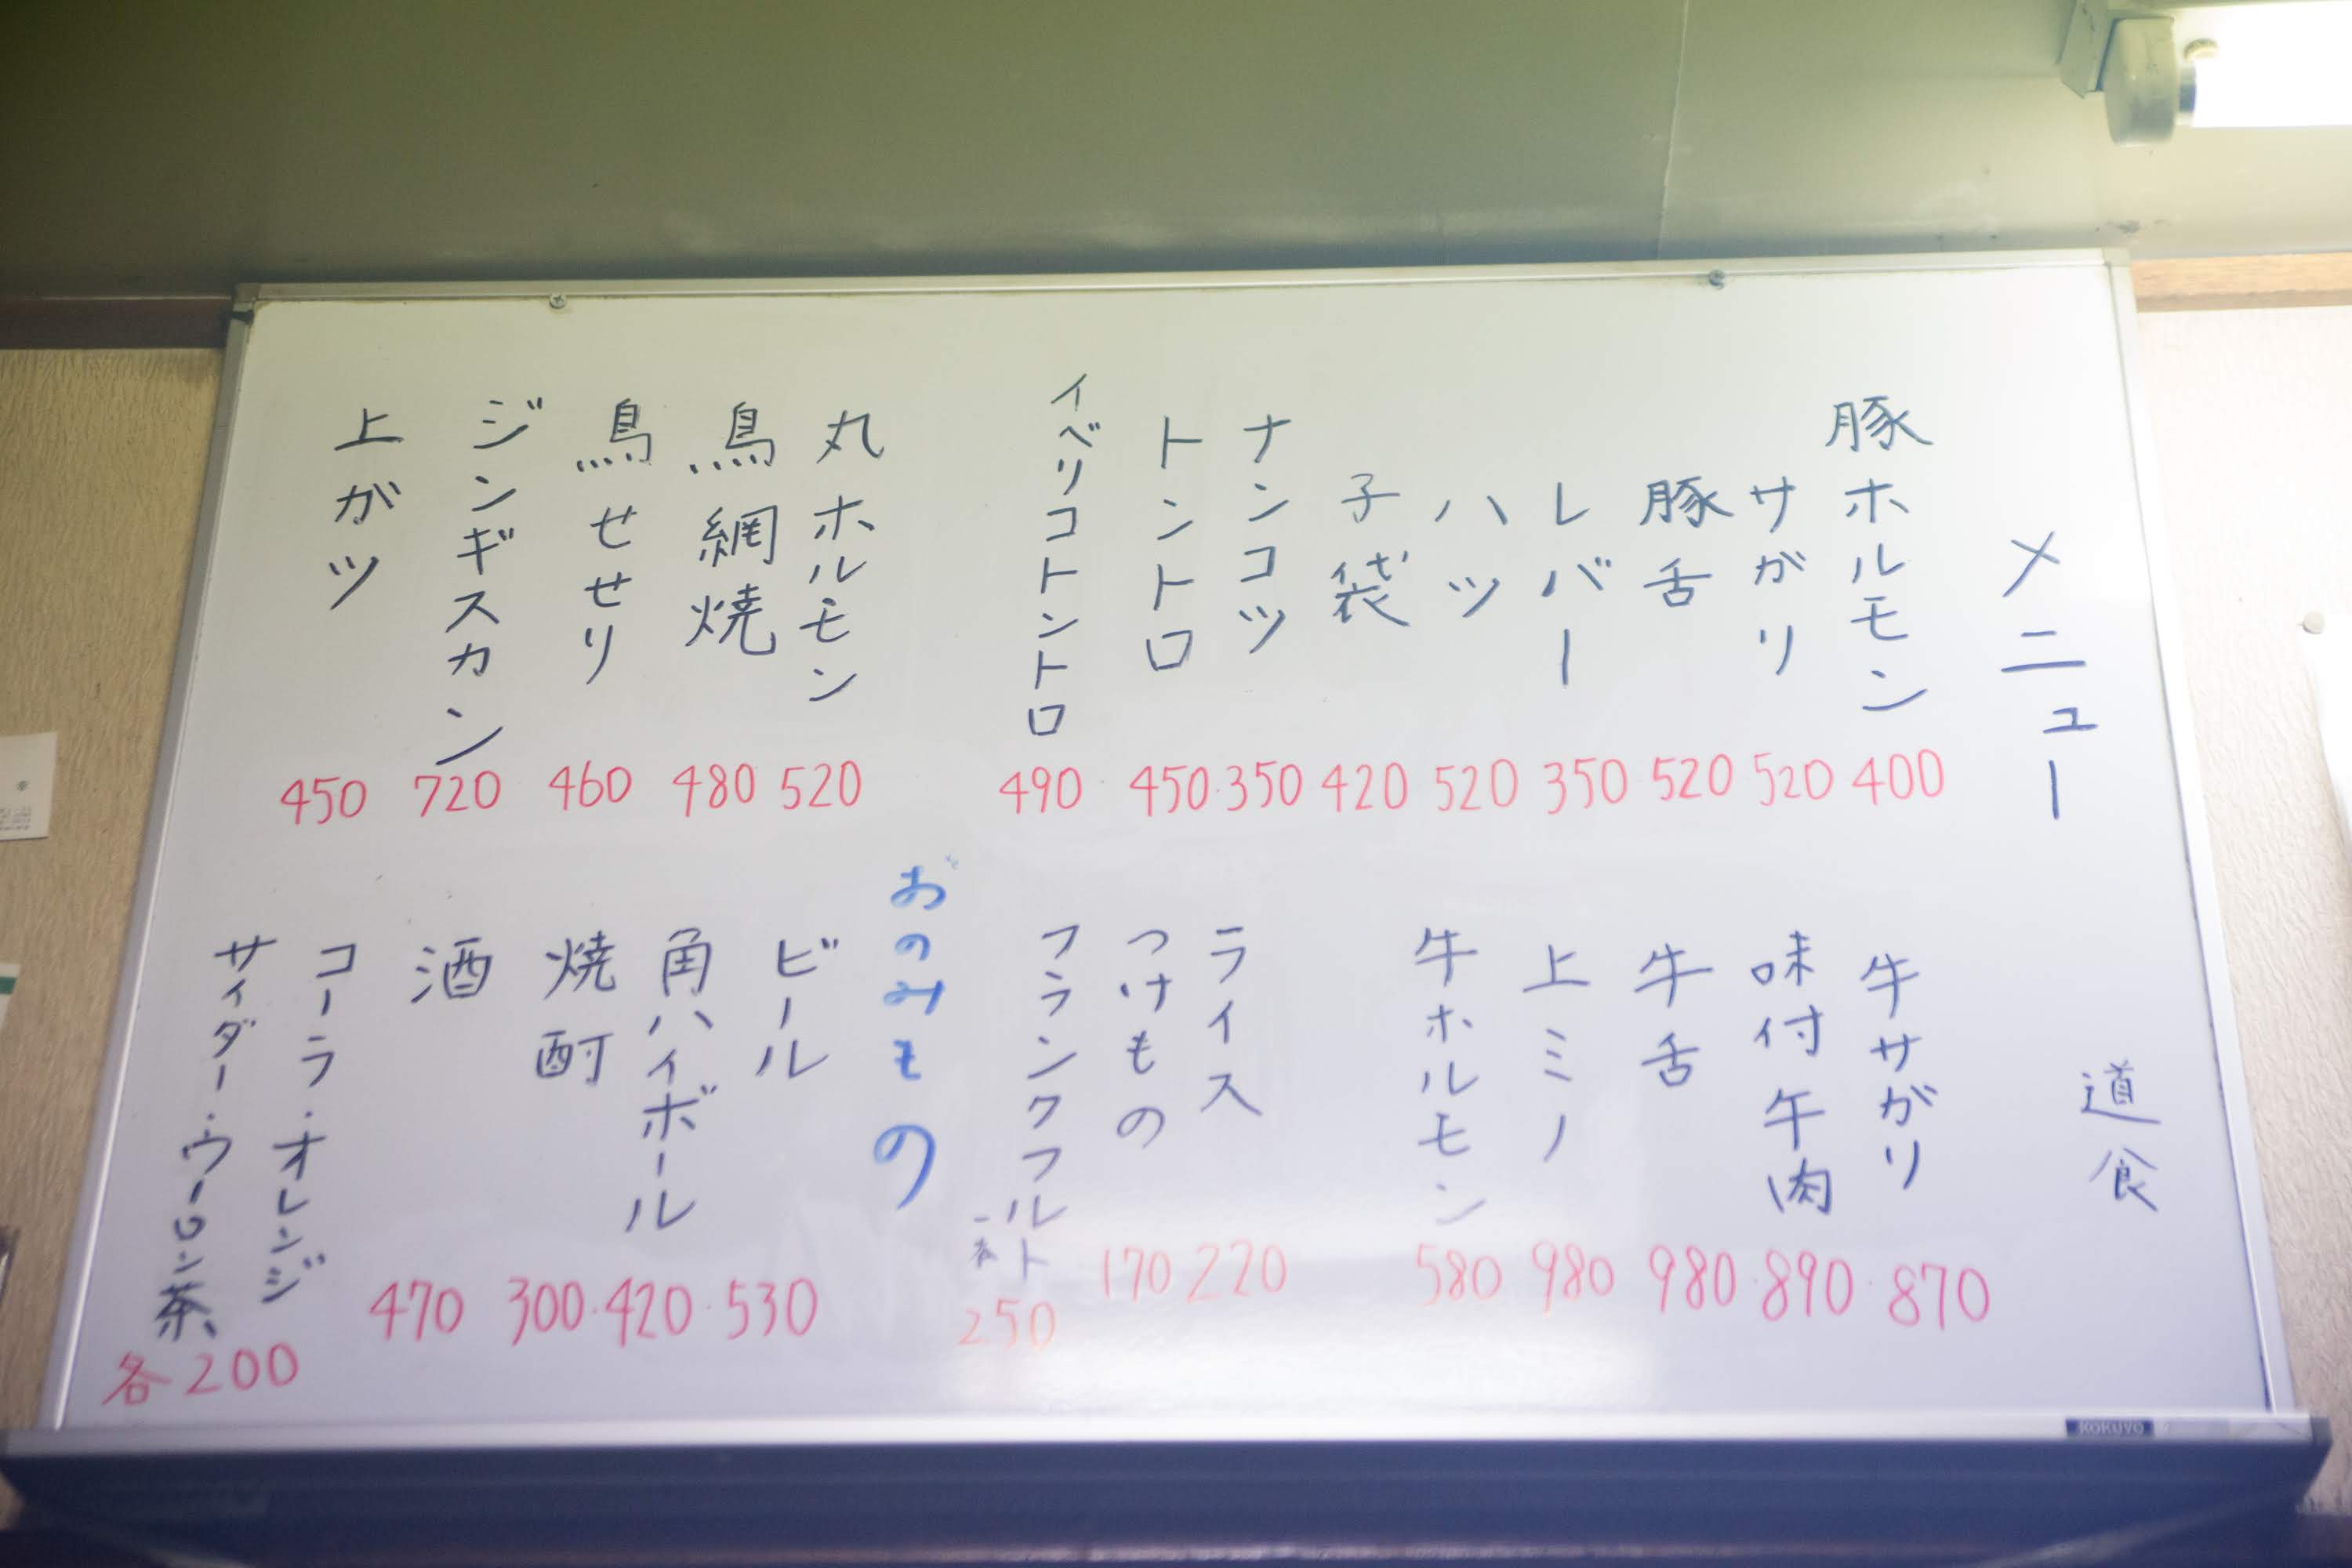 メニュー
道食
豚ホルモン
400
サガリ
520
豚舌
520
レバー
350
ハツ
520
子袋
420
ナンコツ
350
トントロ
450
イベリコトントロ
490
丸ホルモン
520
鳥網焼
480
鳥せせり
460
ジンギスカン
720
上ガツ
450
牛サガリ
870
味付牛肉
890
牛舌
980
上ミノ
980
牛ホルモン
580
ライス
220
つけもの
170
フランクフルト
一本
250
おのみもの
ビール
530
角ハイボール
420
焼酎
300
酒
470
コーラ・オレンジ
サイダー・ウーロン茶
各200
KOKUYO